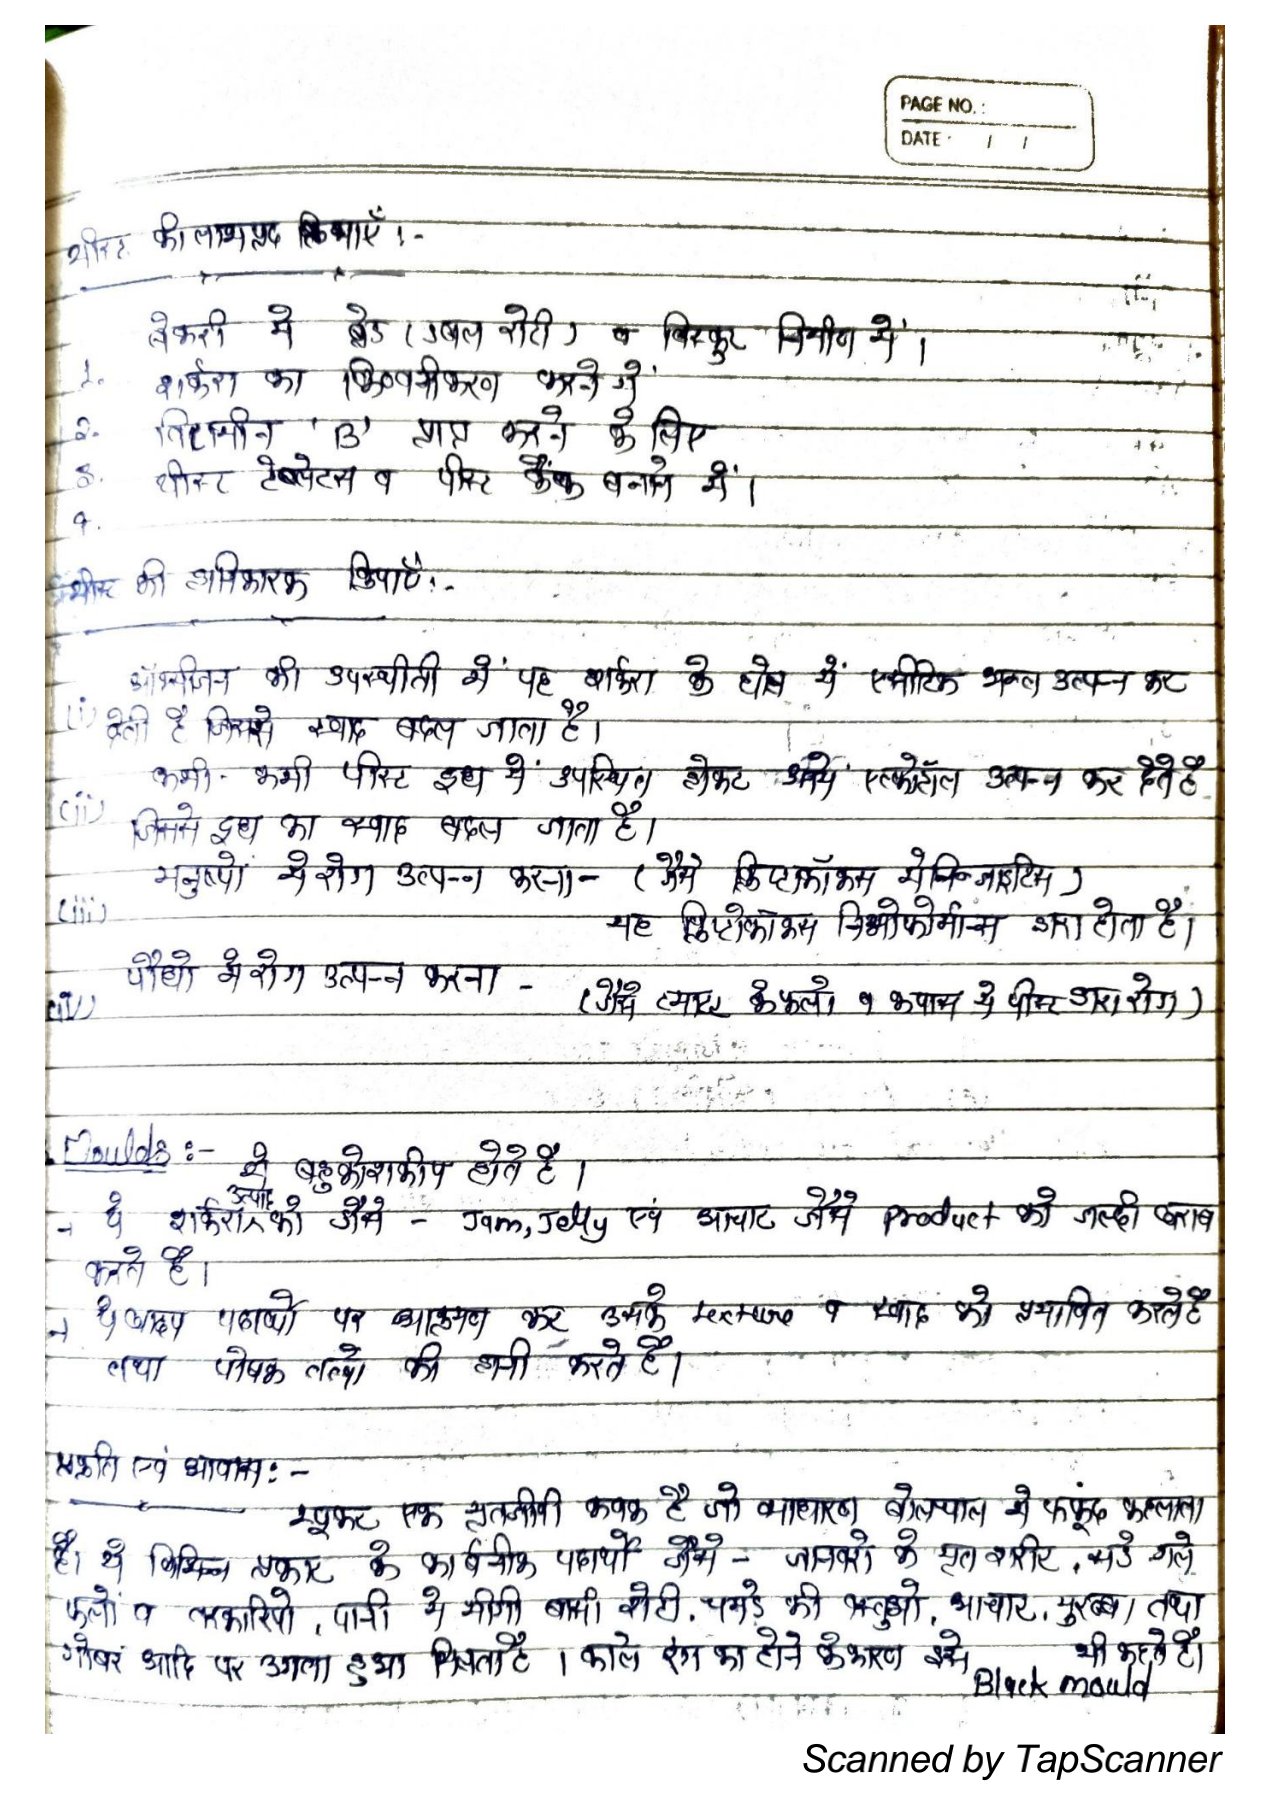 PAGE NO. :
DATE : / /
यीस्ट की लाभप्रद क्रियाएँ :-
1. बेकरी मे ब्रेड (डबल रोटी) व बिस्कुट निर्माण में।
2. शर्करा का किण्वनीकरण करने में
3. विटामीन 'B' प्राप्त करने के लिए
4. यीस्ट टेबलेटस व यीस्ट कैक बनाने में।
यीस्ट की हानिकारक क्रियाएँ :-
(i) ऑक्सीजन की उपस्थीती में यह शर्करा के घोल में एसीटिक अम्ल उत्पन्न कर
देती है जिससे स्वाद बदल जाता है।
(ii) कभी- कभी यीस्ट दूध में उपस्थित होकर उसमें एल्कोहॉल उत्पन्न कर देते है
जिससे दूध का स्वाद बदल जाता है।
(iii) मनुष्यों मे रोग उत्पन्न करना - (जैसे क्रिप्टोकॉकस मेनिन्जाइटिस)
यह क्रिप्टोकॉकस निओफोर्मान्स द्वारा होता है।
(iv) पौधो मे रोग उत्पन्न करना -
(जैसे टमाटर के फलो व कपास मे यीस्ट द्वारा रोग)
Moulds :-
ये बहुकोशकीय होते है।
→ ये शर्करा उत्पाद को जैसे - Jam, Jelly एवं आचार जैसे product को जल्दी खराब
करते है।
→ ये खाद्य पदार्थो पर आक्रमण कर उसके texture व स्वाद को प्रभावित करते है
तथा पोषक तत्वो की हानी करते है।
प्रकृति एवं आवास :-
म्यूकर एक मृतजीवी कवक है जो साधारण बोलचाल मे फफूंद कहलाता
है। ये विभिन्न प्रकार के कार्बनीक पदार्थो जैसे - जानवरो के मृत शरीर, सडे गले
फलों व तरकारियो, पानी मे भीगी बासी रोटी, चमडे की वस्तुओ, आचार, मुरब्बा तथा
गोबर आदि पर उगता हुआ मिलता है। काले रंग का होने के कारण इसे Black mould भी कहते है।
Scanned by TapScanner